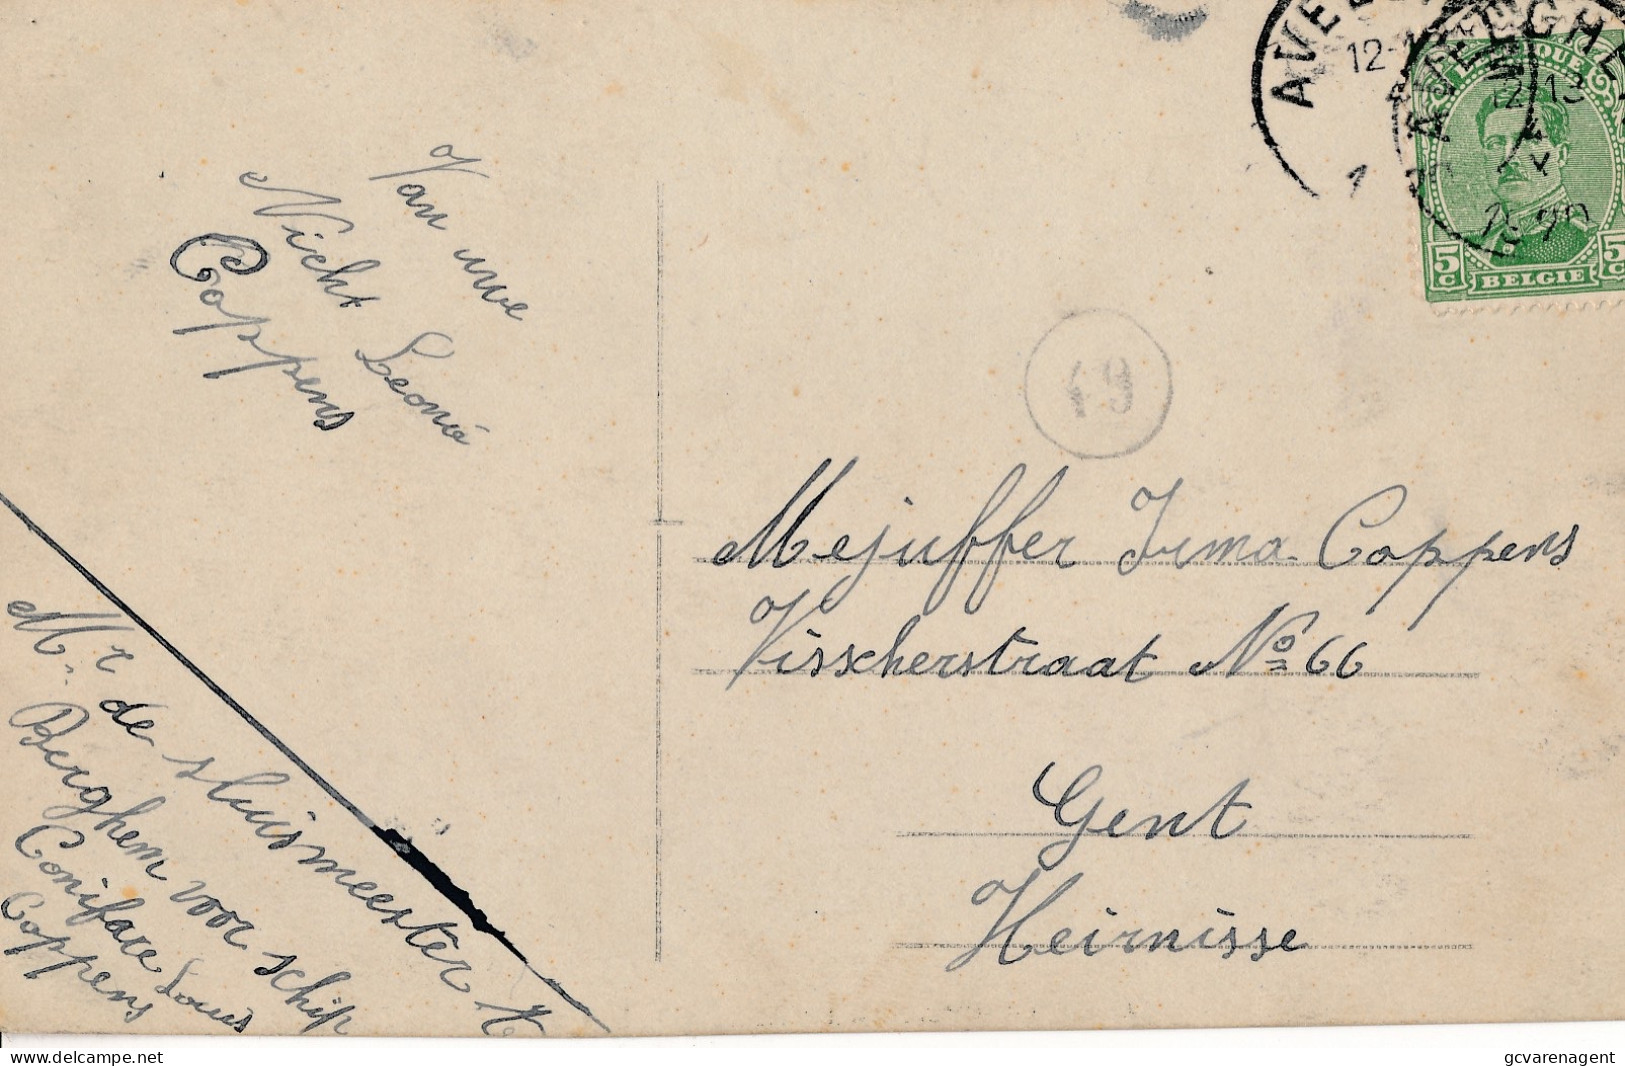 Van uwe
Nicht Leonie
Coppens
Mr. de sluismeester te
Berghem voor schip
Boniface Louis
Coppens
AVE
12-1
1
AVELGHE
12-13
1920
BELGIQUE
5c
BELGIE
5c
49
Mejuffer Irma Coppens
Visscherstraat No 66
Gent
Heirnisse
delcampe.net
gcvarenagent